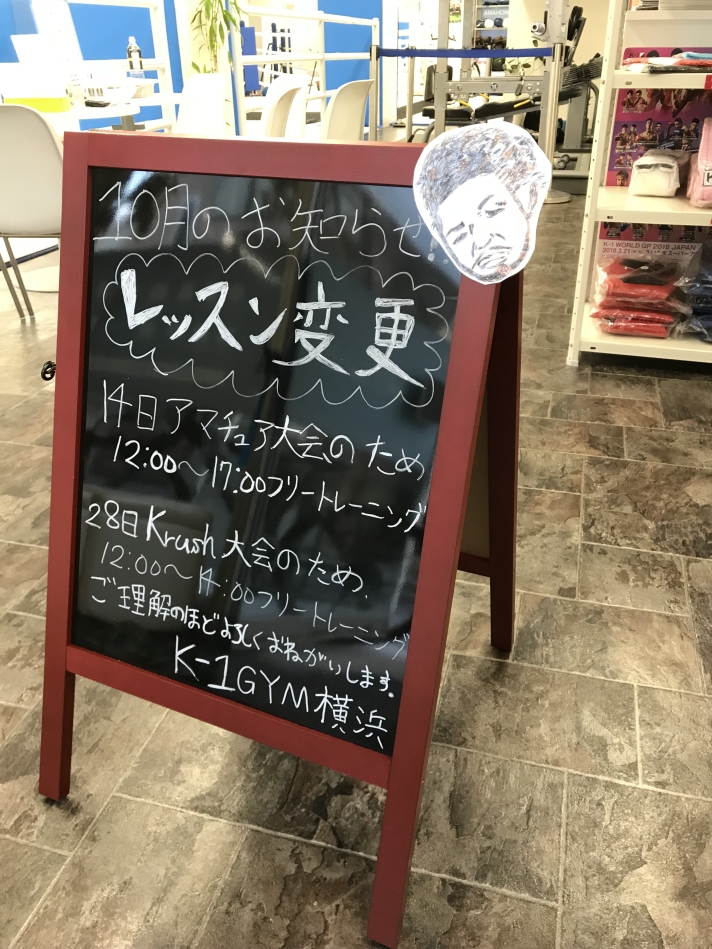 10月のお知らせ!
レッスン変更
14日アマチュア大会のため
12:00〜17:00フリートレーニング
28日Krush大会のため
12:00〜14:00フリートレーニング
ご理解のほどよろしくおねがいします。
K-1GYM横浜
K-1 WORLD GP 2018 JAPAN
2018.3.21